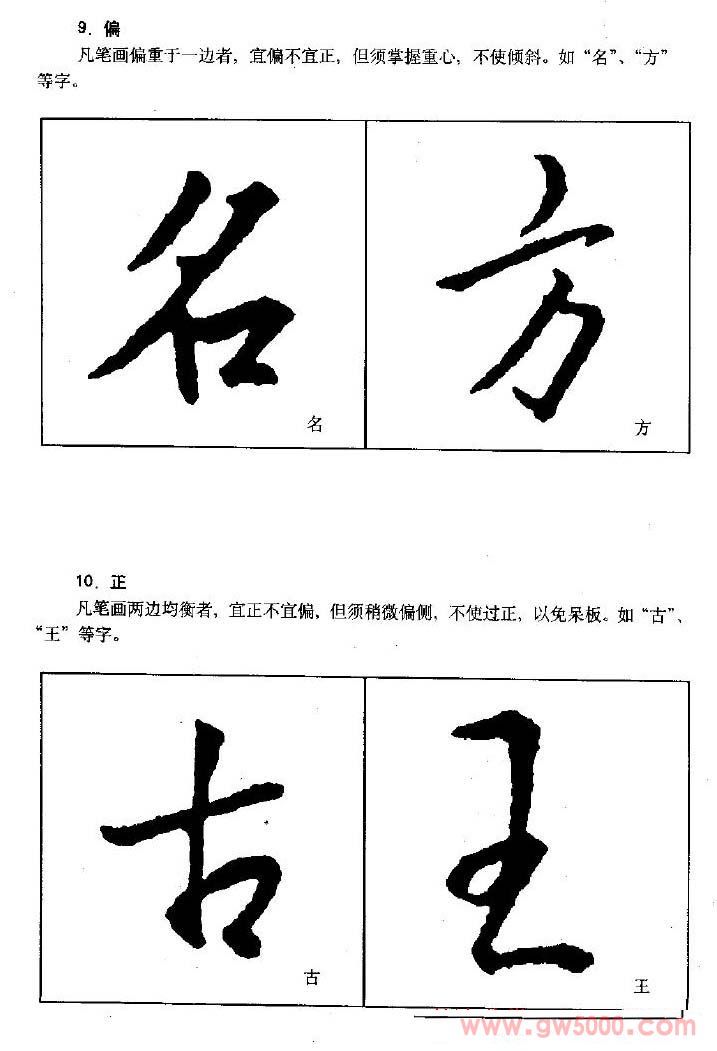 9. 偏
凡笔画偏重于一边者，宜偏不宜正，但须掌握重心，不使倾斜。如“名”、“方”
等字。
名 方
名 方
10. 正
凡笔画两边均衡者，宜正不宜偏，但须稍微偏侧，不使过正，以免呆板。如“古”、
“王”等字。
古 王
古 王
www.gw5000.com